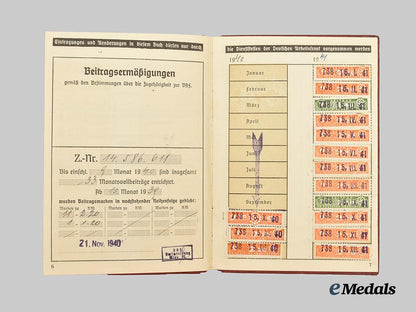 Eintragungen und Aenderungen in diesem Buch dürfen nur durch
Beitragsermäßigungen
gemäß den Bestimmungen über die Zugehörigkeit zur DAF.
Z.-Nr. 14.586.611
Bis einschl. Monat 1940 sind insgesamt
33 Monatsvollbeiträge entrichtet.
Ab Monat 19
werden Beitragsmarken in nachstehender Reihenfolge geklebt:
21. Nov. 1940
6
die Dienststellen der Deutschen Arbeitsfront vorgenommen werden
1940 1941
Januar 738 15. I. 41
Februar 738 15. II. 41
März 738 15. III. 41
April 738 15. IV. 41
Mai 738 15. V. 41
Juni 738 15. VI. 41
Juli 738 15. VII. 41
August 738 15. VIII. 41
September 738 15. IX. 41
738 15. X. 40 738 15. X. 41
738 15. XI. 40 738 15. XI. 41
738 15. XII. 40 738 15. XII. 41
7
eMedals